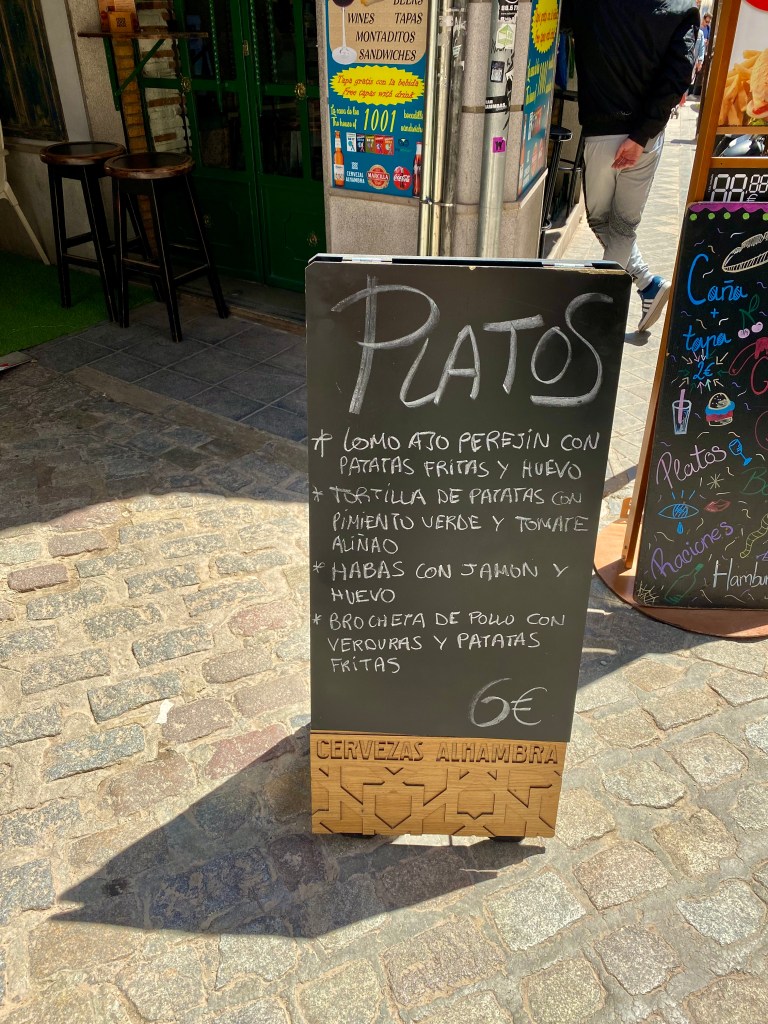 BEERS
WINES TAPAS
MONTADITOS
SANDWICHES
Tapa gratis con la bebida
Free tapas with drink
1001
CERVEZAS
ALHAMBRA
Coca-Cola
PLATOS
* LOMO AJO PEREJIN CON
PATATAS FRITAS Y HUEVO
* TORTILLA DE PATATAS CON
PIMIENTO VERDE Y TOMATE
ALIÑAO
* HABAS CON JAMON Y
HUEVO
* BROCHETA DE POLLO CON
VERDURAS Y PATATAS
FRITAS
6€
CERVEZAS ALHAMBRA
Caña
+
tapa
2€
Platos
Raciones
Hambur